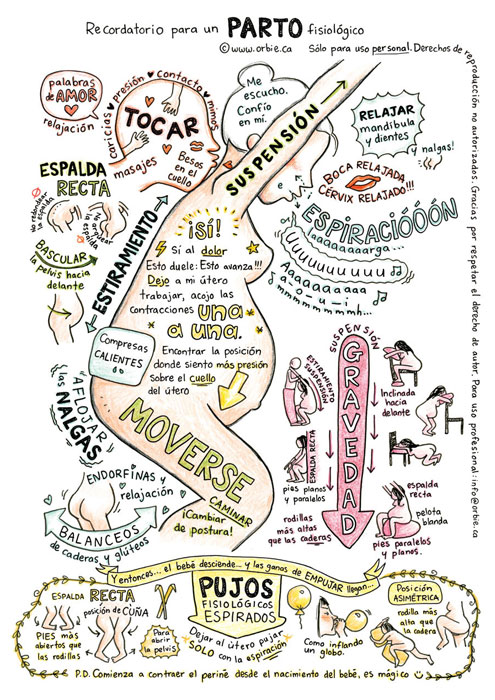 Recordatorio para un PARTO fisiológico
© www.orbie.ca
Sólo para uso personal. Derechos de reproducción no autorizados. Gracias por respetar el derecho de autor. Para uso profesional: info@orbie.ca
palabras
de AMOR
relajación
caricias
presión
contacto
mimos
TOCAR
masajes
Besos
en el
cuello
Me
escucho.
Confío
en mí.
SUSPENSIÓN
RELAJAR
mandíbula
y dientes
y nalgas!
BOCA RELAJADA
CÉRVIX RELAJADO!!!
ESPALDA
RECTA
No redondear
la espalda
No arquear
la espalda
BASCULAR
la pelvis hacia
delante
ESTIRAMIENTO
¡SÍ!
Sí al dolor
Esto duele: Esto avanza!!!
Dejo a mi útero
trabajar, acojo las
contracciones una
a una.
Encontrar la posición
donde siento más presión
Sobre el cuello
del útero
ESPIRACIÓÓÓN
laaaaaaaarga...
UUUUUUUUUUUU
o/
Aaaaaaaaaa
a-o-u-i
mmmmmmmmh...
Compresas
CALIENTES
MOVERSE
CAMINAR
¡Cambiar
de postura!
AFLOJAR
las NALGAS
ENDORFINAS y
relajación
BALANCEOS
de caderas y glúteos
SUSPENSIÓN
GRAVEDAD
ESTIRAMIENTO
SUSPENSIÓN
ESPALDA RECTA
pies planos
y paralelos
rodillas
más altas
que las caderas
Inclinada
hacia
delante
espalda
recta
pelota
blanda
pies paralelos
y planos.
Y entonces... el bebé desciende... y las ganas de EMPUJAR llegan...
PUJOS
FISIOLÓGICOS
ESPIRADOS
Dejar al útero pujar
SOLO con la espiración
ESPALDA RECTA
posición de CUÑA
PIES más
abiertos que
las rodillas
Para
abrir
la pelvis
Como inflando
un globo.
Posición
ASIMÉTRICA
rodilla más
alta que
la cadera
P.D. Comienza a contraer el periné desde el nacimiento del bebé, es mágico